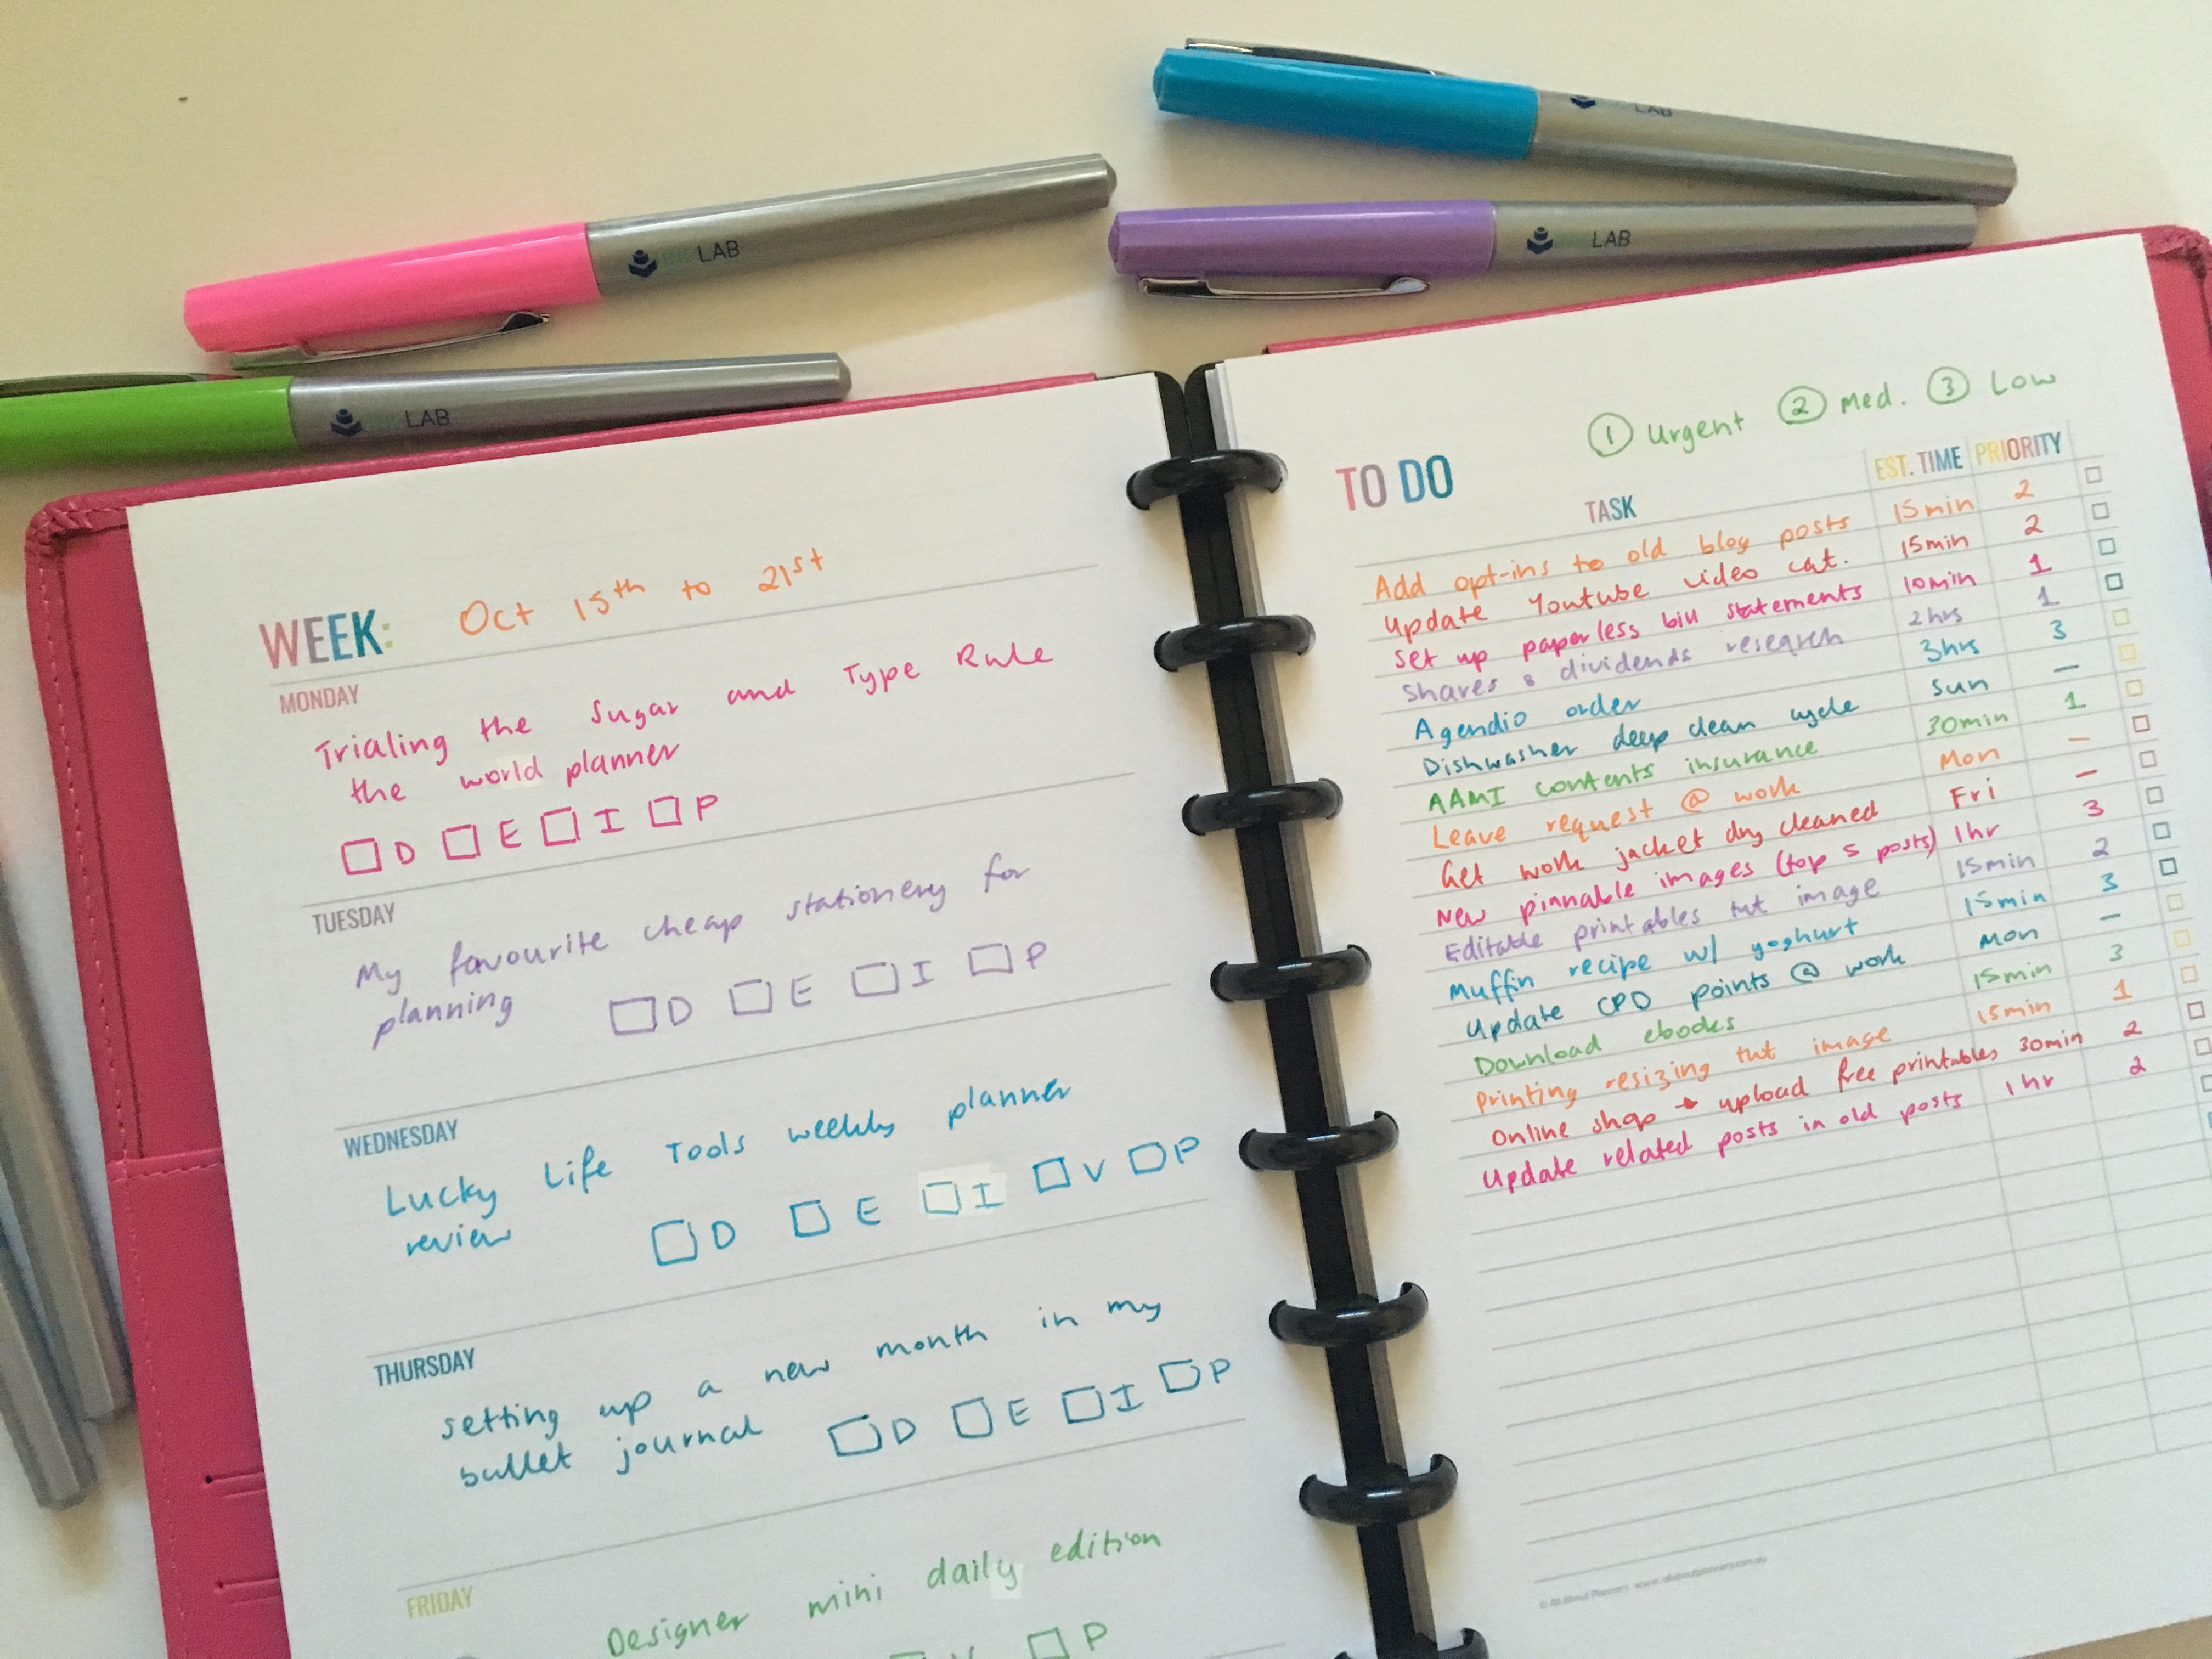 LAB
LAB
LAB
LAB
WEEK: Oct 15th to 21st
MONDAY
Trialing the Sugar and Type Rule
the world planner
D E I P
TUESDAY
My favourite cheap stationery for
planning D E I P
WEDNESDAY
Lucky Life Tools weekly planner
review D E I V P
THURSDAY
setting up a new month in my
bullet journal D E I P
FRIDAY
Designer mini daily edition
V P
1 Urgent 2 Med. 3 Low
TO DO
TASK EST. TIME PRIORITY
Add opt-ins to old blog posts 15min 2
Update Youtube video cat. 15min 2
Set up paperless bill statements 10min 1
Shares & dividends research 2hrs 1
Agendio order 3hrs 3
Dishwasher deep clean cycle Sun –
AAMI contents insurance 30min 1
Leave request @ work Mon –
Get work jacket dry cleaned Fri –
New pinnable images (top 5 posts) 1hr 3
Editable printables tut image 15min 2
Muffin recipe w/ yoghurt 15min 3
Update CPD points @ work Mon –
Download ebooks 15min 3
Printing resizing tut image 15min 1
Online shop → upload free printables 30min 2
Update related posts in old posts 1hr 2
© All About Planners www.allaboutplanners.com.au